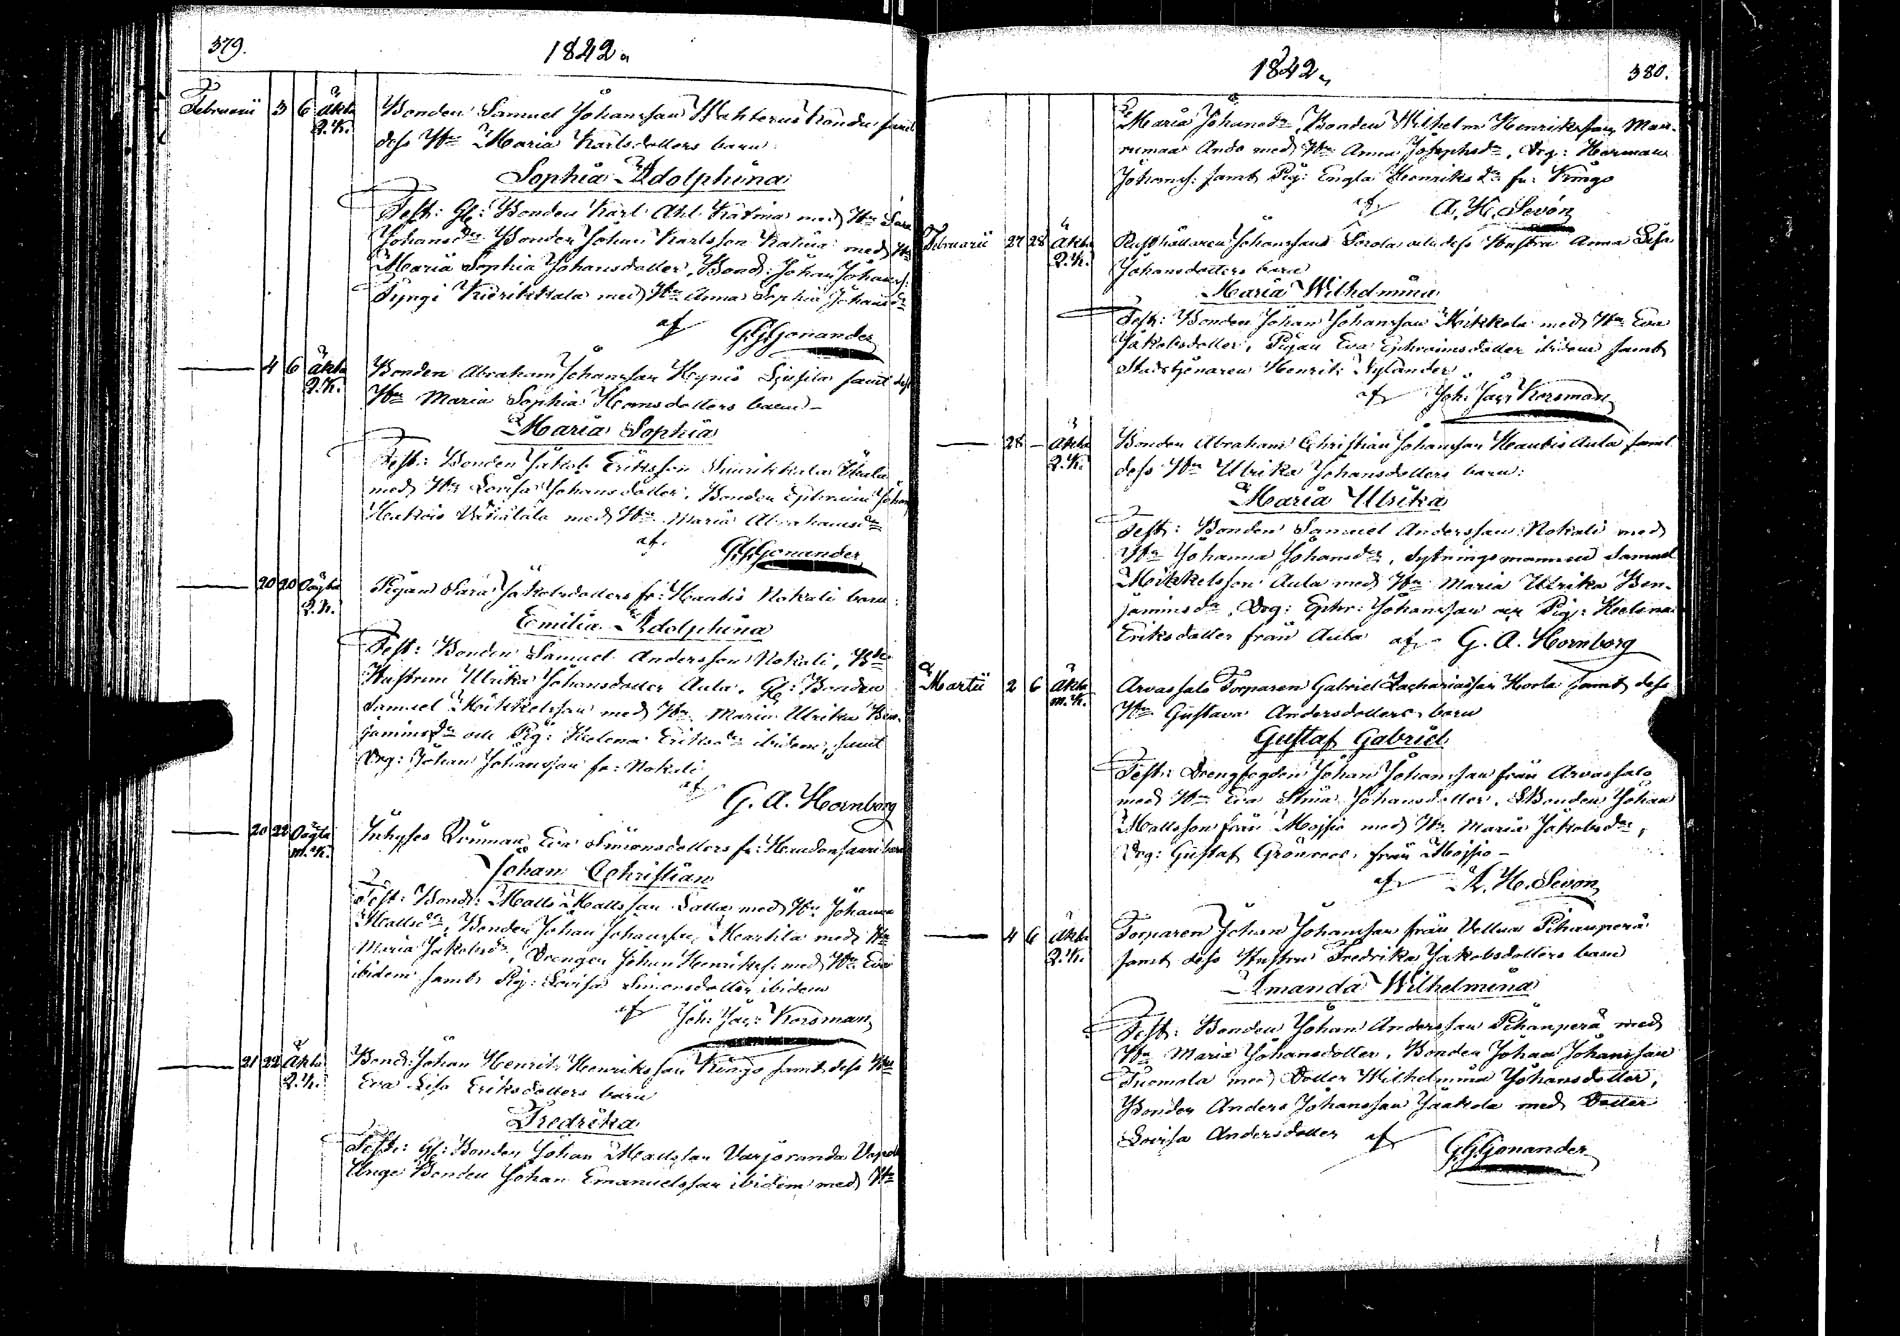 379.
1842.
Februarii 3 6 Äkta Bonden Samuel Johansson samt
Q.K. dess Hu Maria Karlsdotters barn
Sophia Adolphina
Test: Gl: Bonden Karl med Hu Sara
Johansdr Bonden Johan Karlsson med Hu
Maria Sophia Johansdotter, Bond: Johan Johanss:
med Hu Anna Sophia Johansdr
af G.G. Gonander
4 6 Äkta Bonden Abraham Johansson samt dess
Q.K. Hu Maria Sophia Hansdotters barn
Maria Sophia
Test: Bonden Jakob Eriksson
med Hu Lovisa Johansdotter, Bonden Ephraim
med Hu Maria Abrahamsdr
af G.G. Gonander
20 20 Oägta Pigan Sara Jakobsdotters fr: Hautis Nokali barn
Q.K.
Emilia Adolphina
Test: Bonden Samuel Andersson Nokali,
Hustrun Ulrika Johansdotter Aula, Gl: Bonden
Samuel Mikkelsson med Hu Maria Ulrika Ben-
jaminsdr och Pig: Helena Eriksdr ibidem, samt
Drg: Johan Johansson fr: Nokali
af
G. A. Hornberg
20 22 Oägta Inhyses Qvinnan Eva Simonsdotters fr: barn
m.K.
Johan Christian
Test: Bond: Matts Mattsson med Hu Johanna
Mattsdr, Bonden Johan Johansson Marttila med Hu
Maria Jakobsdr, Drengen Johan Henrikss: med Hu Eva
ibidem samt Pig: Lovisa Simonsdotter ibidem
af Joh: Jac: Korsman
21 22 Äkta Bond: Johan Henrik Henriksson Kingo samt dess Hu
Q.K. Eva Lisa Eriksdotters barn
Fredrika
Test: Gl: Bonden Johan Mattsson Varjoranda
Unge Bonden Johan Emanuelsson ibidem med Hu
1842.
380.
Maria Johansdr, Bonden Wilhelm Henriksson
med Hu Anna Josephsdr, Drg: Herman
Johanss: samt Pig: Engla Henriksdr fr: Kingo
af A. H. Sevón
Februarii 27 28 Äkta Rusthållaren Johanssons Sorola och dess Hustru Anna Lisa
Q.K. Johansdotters barn
Maria Wilhelmina
Test: Bonden Johan Johansson Mikkola med Hu Eva
Jakobsdotter, Pigan Eva Ephraimsdotter ibidem samt
Henrik Nylander
af Joh: Jac: Korsman
28 – Äkta Bonden Abraham Christian Johansson Hautis Aula samt
Q.K. dess Hu Ulrika Johansdotters barn:
Maria Ulrika
Test: Bonden Samuel Andersson Nokali med
Hu Johanna Johansdr, Sytningsmannen Samuel
Mikkelsson Aula med Hu Maria Ulrika Ben-
jaminsdr, Drg: Ephr: Johansson och Pig: Helena
Eriksdotter från Aula af G. A. Hornberg
Martii 2 6 Äkta Arvassalo Torparen Gabriel Zachariasson Horla samt dess
m.K. Hu Gustava Andersdotters barn
Gustaf Gabriel
Test: Drengfogden Johan Johansson från Arvassalo
med Hu Eva Stina Johansdotter, Bonden Johan
Mattsson från Moisio med Hu Maria Jakobsdr,
Drg: Gustaf Grönroos från Moisio
af A. H. Sevón
4 6 Äkta Torparen Johan Johansson från Vellua Pihanperä
Q.K. samt dess Hustru Fredrika Jakobsdotters barn
Amanda Wilhelmina
Test: Bonden Johan Andersson Pihanperä med
Hu Maria Johansdotter, Bonden Johan Johansson
Tuomola med Dotter Wilhelmina Johansdotter,
Bonden Anders Johansson Jaakola med Dotter
Lovisa Andersdotter af G.G. Gonander